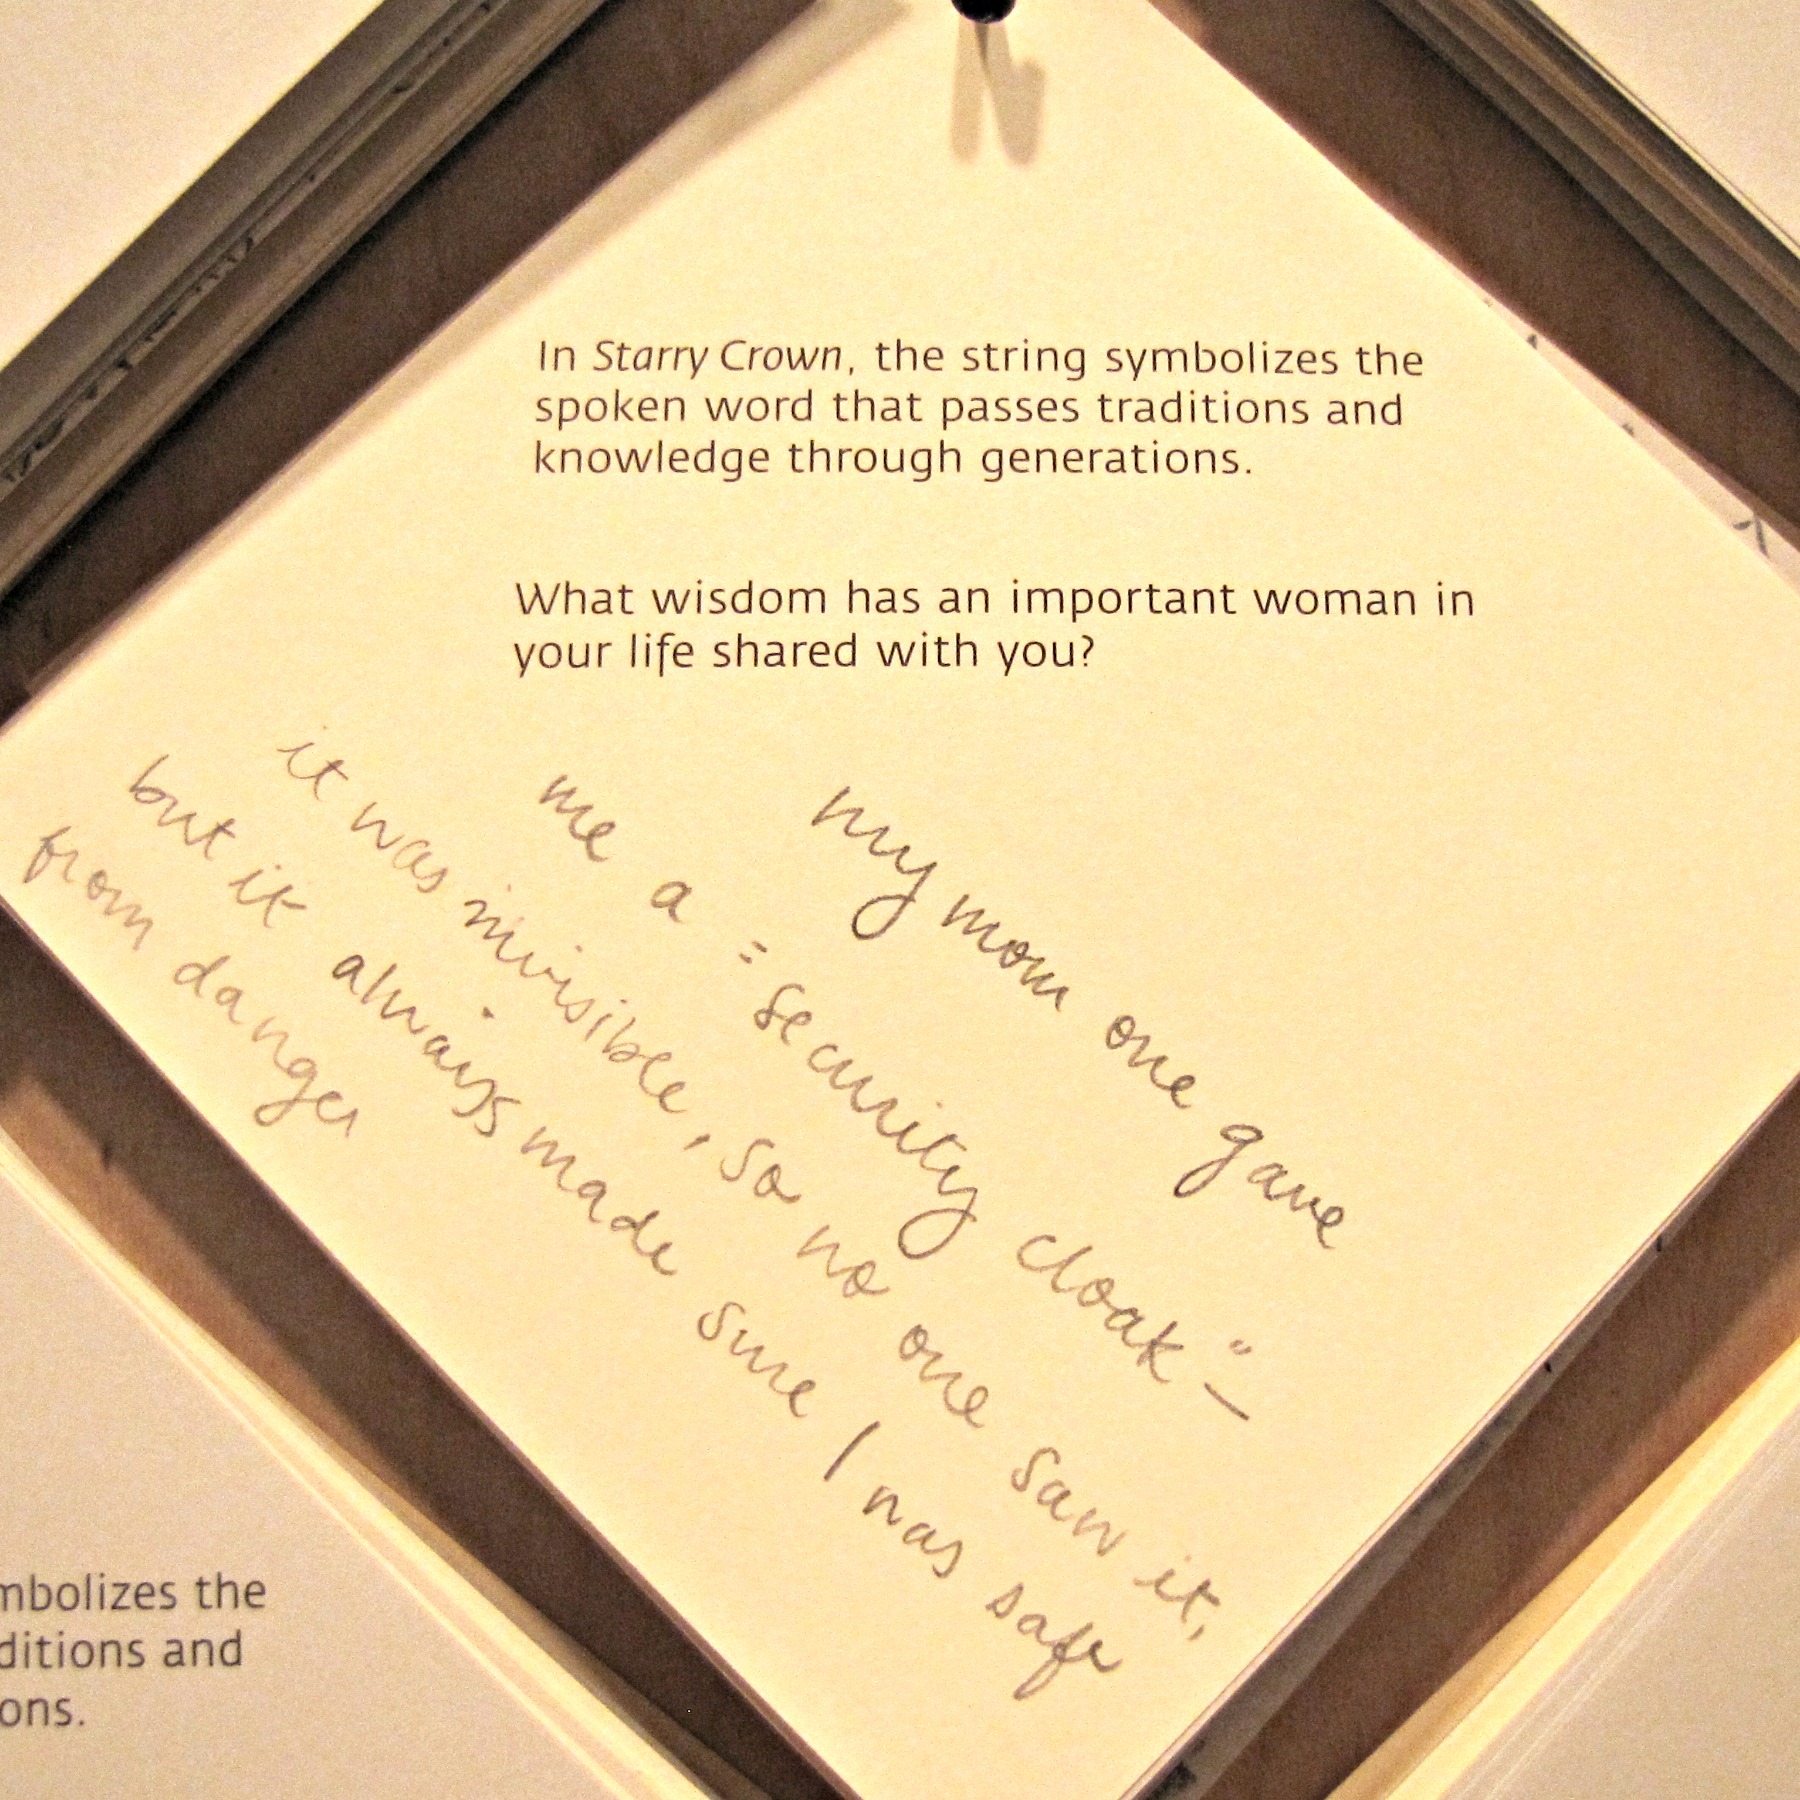 In Starry Crown, the string symbolizes the
spoken word that passes traditions and
knowledge through generations.
What wisdom has an important woman in
your life shared with you?
my mom one gave
me a "security cloak" –
it was invisible, so no one saw it,
but it always made sure I was safe
from danger
mbolizes the
ditions and
ons.